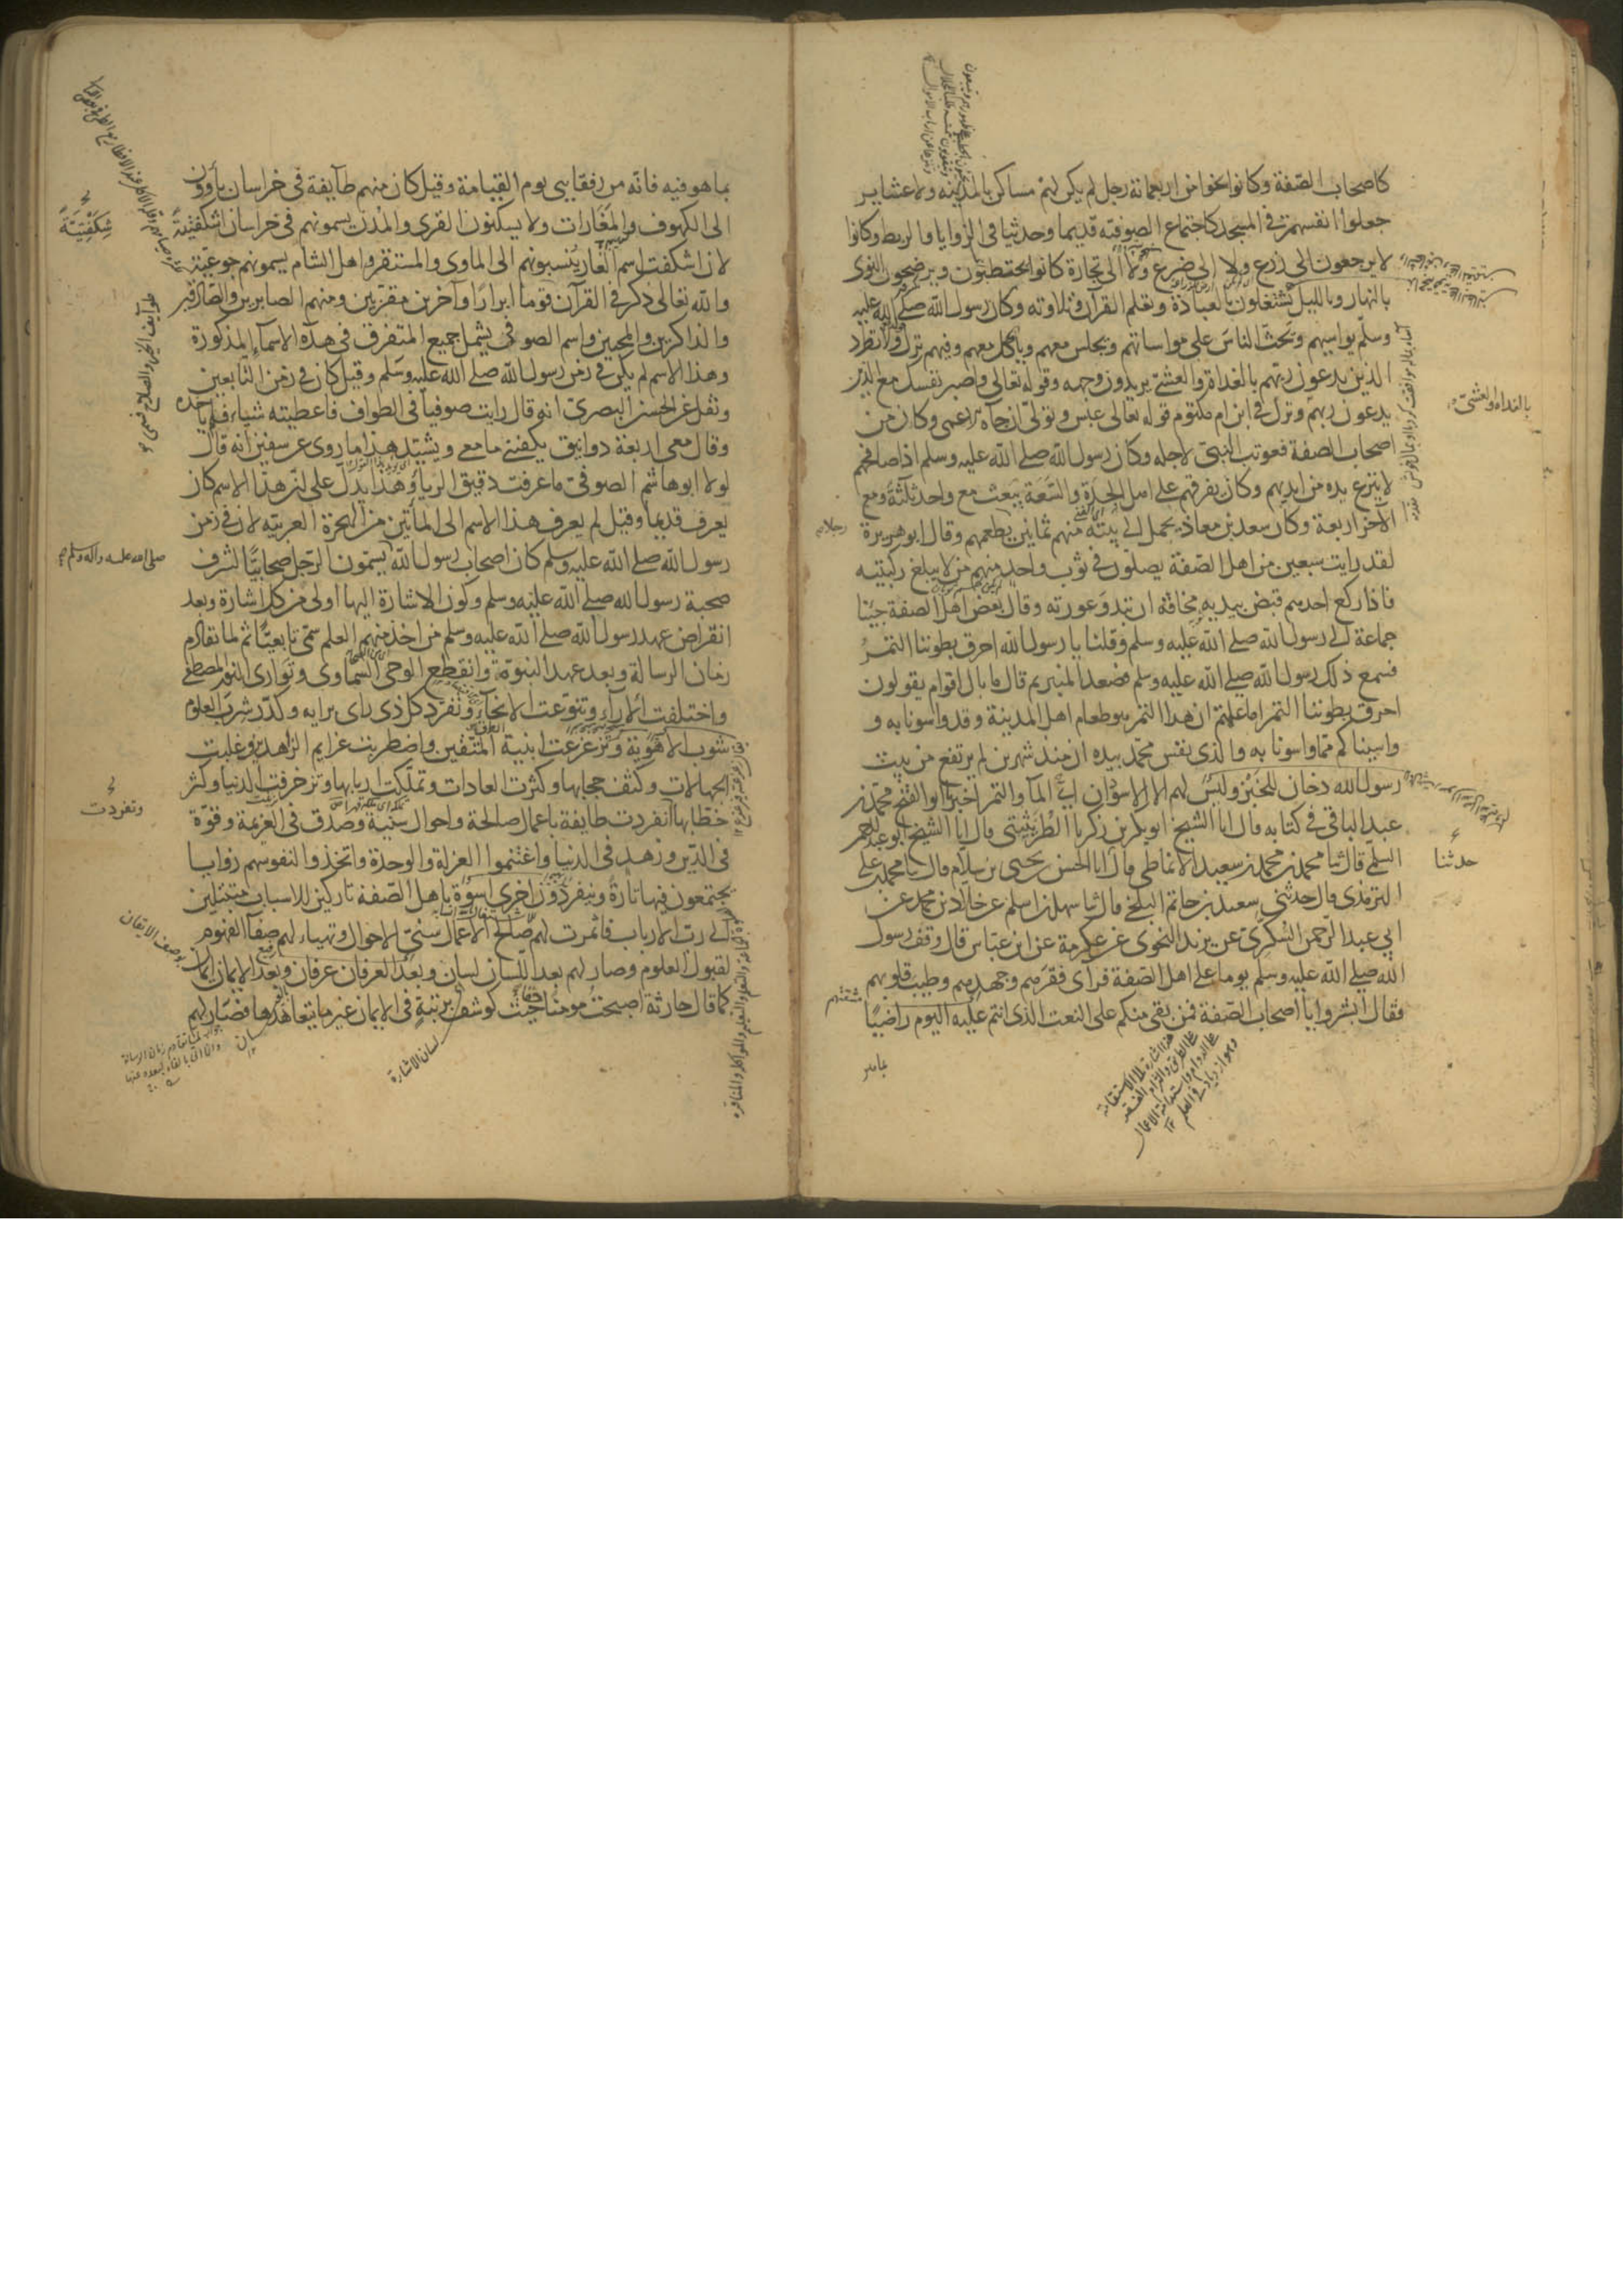 كاصحاب الصّفة وكانوا نحوا من اربعمائة رجل لم يكن لهم مساكن بالمدينه ولا عشاير
جعلوا انفسهم في المسجد كاجتماع الصوفيّه قديما وحديثا في الزوايا والربط وكانوا
لا يرجعون الى زرع ولا الى ضرع ولا الى تجارة كانوا يحتطبون ويرضخون النوى
بالنهار وبالليل يشتغلون بالعبادة وتعلم القرآن وتلاوته وكان رسول الله صلى الله عليه
وسلم يواسيهم ويحثّ الناس على مواساتهم ويجلس معهم ويأكل معهم وفيهم نزل ولا تطرد
الذين يدعون ربّهم بالغداة والعشيّ يريدون وجهه وقوله تعالى واصبر نفسك مع الذين
يدعون ربهم ونزل في ابن ام مكتوم قوله تعالى عبس وتولّى ان جآءه الاعمى وكان من
اصحاب الصفة فعوتب النبيّ لاجله وكان رسول الله صلى الله عليه وسلم اذا صافحهم
لا ينزع يده من ايديهم وكان يفرقهم على اهل الجدة والسّعة يبعث مع واحد ثلثة ومع
الآخر اربعة وكان سعد بن معاذ يحمل الى بيته منهم ثمانين يطعمهم وقال ابو هريرة
لقد رايت سبعين من اهل الصّفة يصلّون في ثوب واحد منهم من لا يبلغ ركبتيه
فاذا ركع احدهم قبض بيديه مخافة ان تبدو عورته وقال بعض اهل الصفة جئنا
جماعة الى رسول الله صلى الله عليه وسلم وقلنا يا رسول الله احرق بطوننا التمرُ
فسمع ذلك رسول الله صلى الله عليه وسلم فصعد المنبر ثم قال ما بال اقوام يقولون
احرق بطوننا التمر اما علمتم ان هذا التمر هو طعام اهل المدينة وقد واسونا به و
واسيناكم مما واسونا به والذى نفس محمّد بيده ان منذ شهرين لم يرتفع من بيت
رسول الله دخان للخبز وليس لهم الا الاسودان الماء والتمر اخبرنا ابو الفتح محمّد بن
عبد الباقى في كتابه قال انا الشيخ ابو بكر بن زكريا الطُريثيثى قال انا الشيخ ابو عبد الرحمن
السلمى قال ثنا محمد بن محمد بن سعيد الانماطى قال ثنا الحسن بن يحيى بن سلام قال ثنا محمد بن على
الترمذى قال حدثنى سعيد بن حاتم البلخى قال ثنا سهل بن اسلم عن خالد بن محمد عن
ابى عبد الرحمن السُكرىّ عن يزيد النحوى عن عكرمة عن ابن عبّاس قال وقف رسول
الله صلى الله عليه وسلم يوما على اهل الصّفة فرأى فقرهم وجهدهم وطيب قلوبهم
فقال ابشروا يا اصحاب الصّفة فمن بقى منكم على النعت الذى انتم عليه اليوم راضيًا
بالغداه والعشىّ
حدثنا
بما هو فيه فانّه من رفقايى يوم القيامة وقيل كان منهم طآيفة في خراسان يأوون
الى الكهوف والمغارات ولا يسكنون القرى والمدن يسمونهم في خراسان شكفتيةً
لان اشكفت اسم الغار ينسبونهم الى الماوى والمستقر واهل الشام يسمونهم جوعيّة
والله تعالى ذكر في القرآن قوما ابرارًا وآخرين مقرّبين ومنهم الصابرين والصّادقين
والذاكرين والمحبين واسم الصوفى يشمل جميع المتفرق في هذه الاسمآء المذكورة
وهذا الاسم لم يكن في زمن رسول الله صلى الله عليه وسلم وقيل كان في زمن التابعين
ونقل عن الحسن البصرىّ انه قال رايت صوفيا في الطواف فاعطيته شيا فلم ياخذه
وقال معى اربعة دوانيق يكفينى ما معى ويشيّد هذا ما روى عن سفين انه قال
لولا ابو هاشم الصوفى ما عرفت دقيق الريا وهذا يدلّ على ان هذا الاسم كان
يعرف قديما وقيل لم يعرف هذا الاسم الى المأتين من الهجرة العربيّه لان في زمن
رسول الله صلى الله عليه وسلم كان اصحاب رسول الله يسمون الرجل صحابيًّا لشرف
صحبة رسول الله صلى الله عليه وسلم وكون الاشارة اليها اولى من كل اشارة وبعد
انقراض عهد رسول الله صلى الله عليه وسلم من اخذ منهم العلم سمّى تابعيّا ثم لما تقادم
زمان الرسالة وبعد عهد النبوّة وانقطع الوحى السماوى وتوارى النور المصطفى
واختلفت الآراء وتنوّعت الانحآء وتفرد كل ذى راى برايه وكدّر شرب العلوم
شوب الاهوية وتزعزعت ابنية المتّقين واضطربت عزايم الزاهدين وغلبت
الجهالات وكثف حجابها وكثرت العادات وتملّكت اربابها وتزخرفت الدنيا وكثر
خطّابها انفردت طايفة باعمال صالحة واحوال سنيّة وصدق في العزيمة وقوّة
في الدّين وزهد في الدنيا واغتنموا العزلة والوحدة واتخذوا لنفوسهم زوايا
يجتمعون فيها تارةً وينفردون اخرى اسوةً باهل الصّفة تاركين للاسباب متبتلين
الى ربّ الارباب فاثمرت لهم صالح الاعمال سنىّ الاحوال وتهياء لهم صفآ الفهوم
لقبول العلوم وصار لهم بعد اللّسان لسان وبعد العرفان عرفان وبعد الايمان ايمان
كما قال حارثة اصبحتُ مومنًا حيث كوشف برتبةٍ في الايمان غير ما يتعاهدها فصار لهم
شِكَفْتِيَّةً
صلى الله عليه وآله وسلم
وتفردت
لسان الاشارة